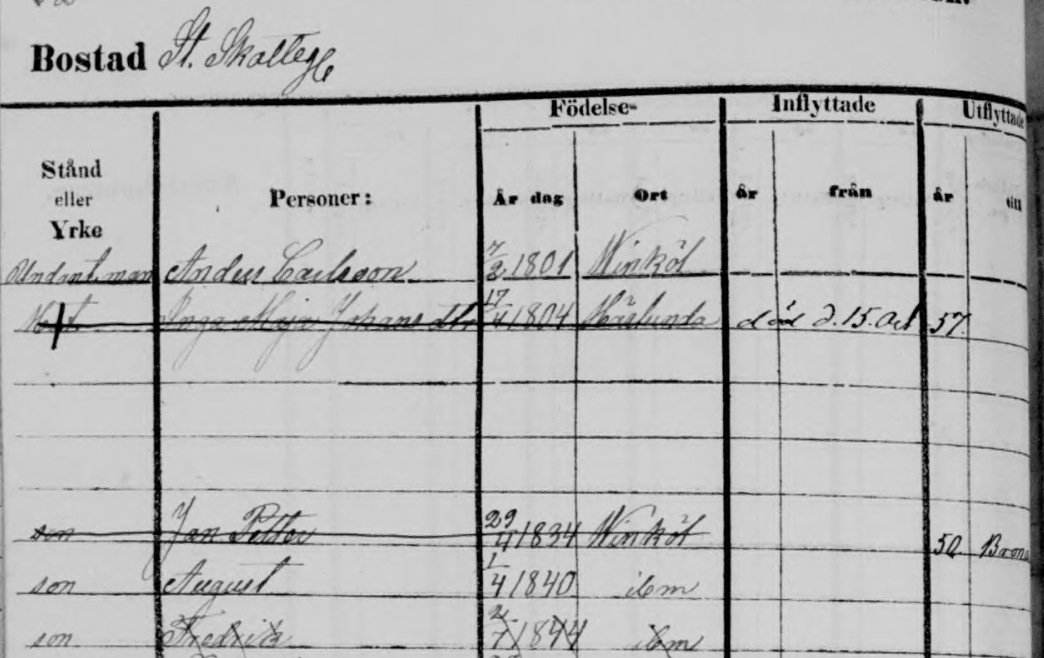 Bostad St. Skattegå
Födelse- Inflyttade Utflyttade
Stånd eller Yrke Personer: År dag Ort år från år till
Undant. man Anders Carlsson 7/2 1801 Winköl
Inga Maja Johans dtr 17/4 1804 Häglunda död d. 15. Oct 57
son Jan Petter 29/4 1834 Winköl 50 Brons
son August 1/4 1840 ibm
son Fredrik 2/7 1844 ibm